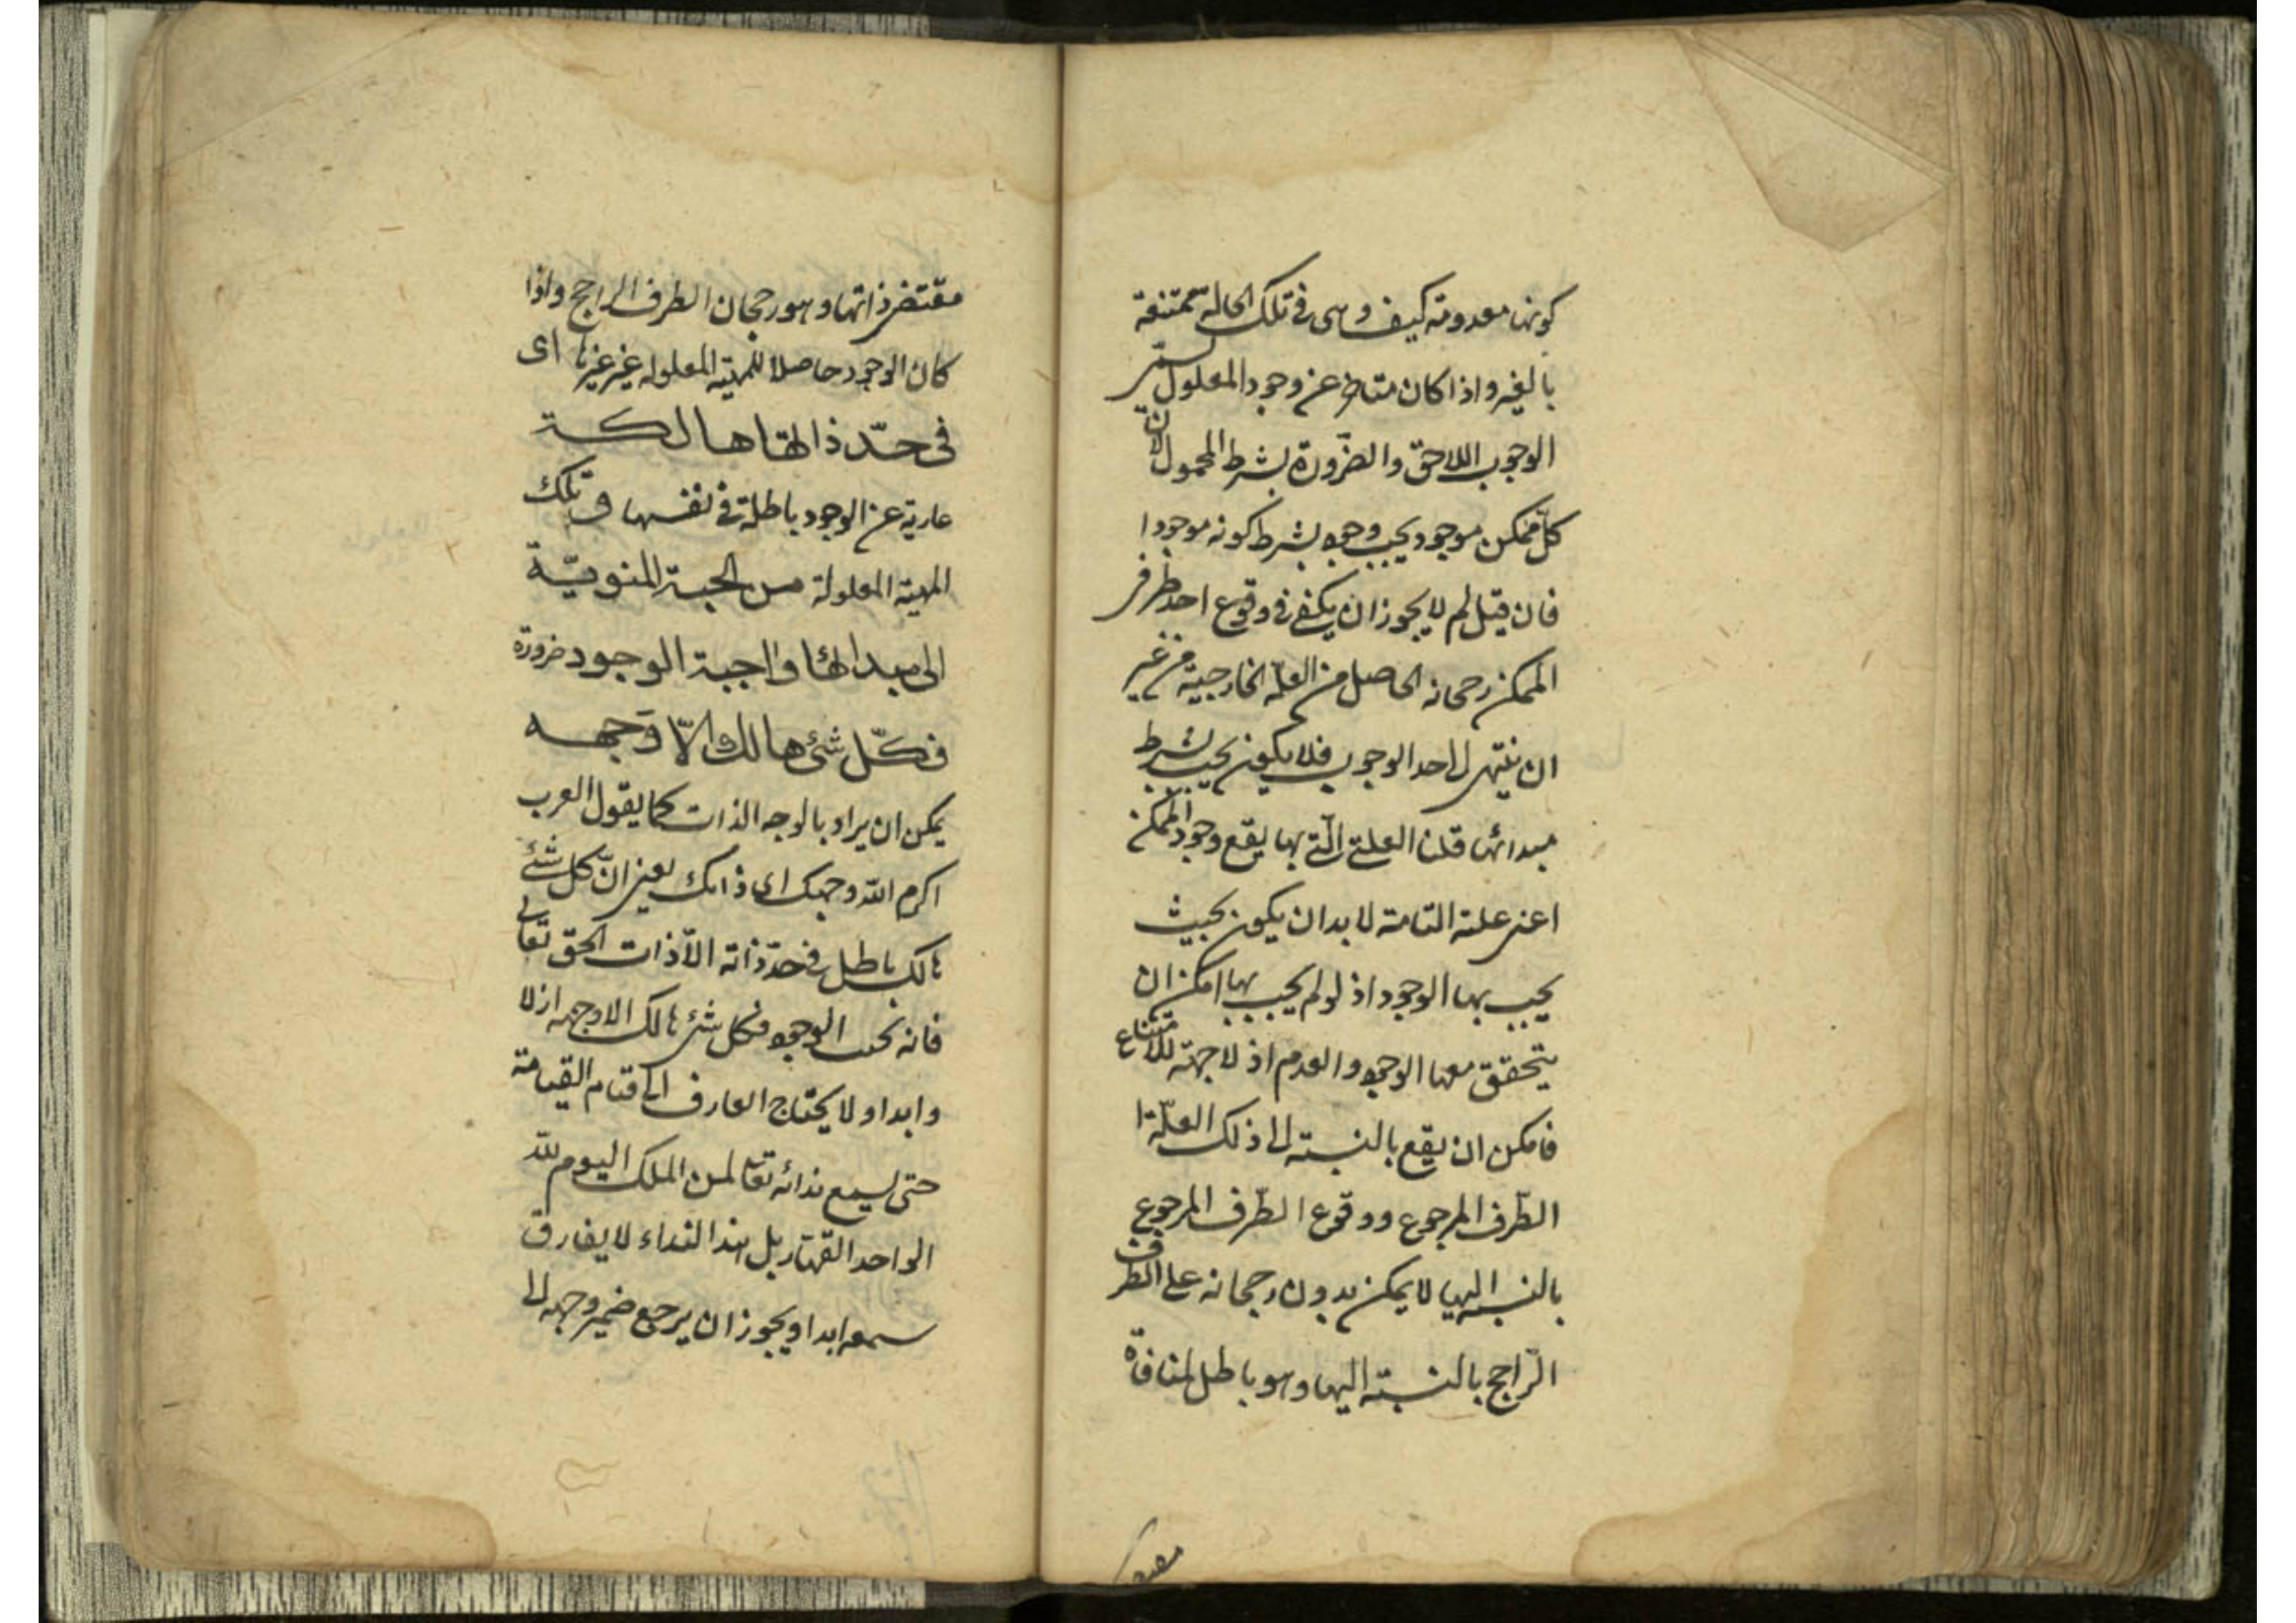 كونها معدومة كيف وهى فى تلك الحالة ممتنعة
بالغير واذا كان متاخر عن وجود المعلول يسمّى
الوجوب اللاحق والضرورة بشرط المحمول لان
كلّ ممكن موجود يجب وجوده بشرط كونه موجودا
فان قيل لم لا يجوز ان يكفى فى وقوع احد طرفى
الممكن رجحانه الحاصل من العلّة الخارجية من غير
ان ينتهى الى حد الوجوب فلا يكون يجب بشرط
مبدائها قلنا العلة الّتى بها يقع وجود الممكن
اعنى علته التامة لا بد ان يكون بحيث
يجب بها الوجود اذ لو لم يجب بها امكن ان
يتحقق معها الوجود والعدم اذ لا جهة للامتناع
فامكن ان يقع بالنسبة الى ذلك العلّة
الطّرف المرجوع ووقوع الطّرف المرجوع
بالنسبة اليها لا يمكن بدون رجحانه على الطرف
الرّاجح بالنسبة اليها وهو باطل لمنافاة
مقتضى ذاتها وهو رجحان الطرف الراجح واذا
كان الوجود حاصلا للمهيّة المعلولة غير غيرها اى
فى حدّ ذاتها هالكة
عارية عن الوجود باطلة فى نفسها و تلك
المهية المعلولة من الجهة المنويّة
الى مبدائها واجبة الوجود ضرورة
فكلّ شئ هالك الّا وَجهه
يمكن ان يراد بالوجه الذات كما يقول العرب
اكرم الله وجهك اى ذاتك يعنى انّ كل شئ
هالك باطل فى حدّ ذاته الّا ذات الحق تعالى
فانه يجب الوجود فكل شئ هالك الا وجهه ازلا
وابدا ولا يحتاج العارف الى قيام القيامة
حتى يسمع ندائه تعالى لمن الملك اليوم لله
الواحد القهّار بل هذا النداء لا يفارق
سمعه ابدا ويجوز ان يرجع ضمير وجهه الى